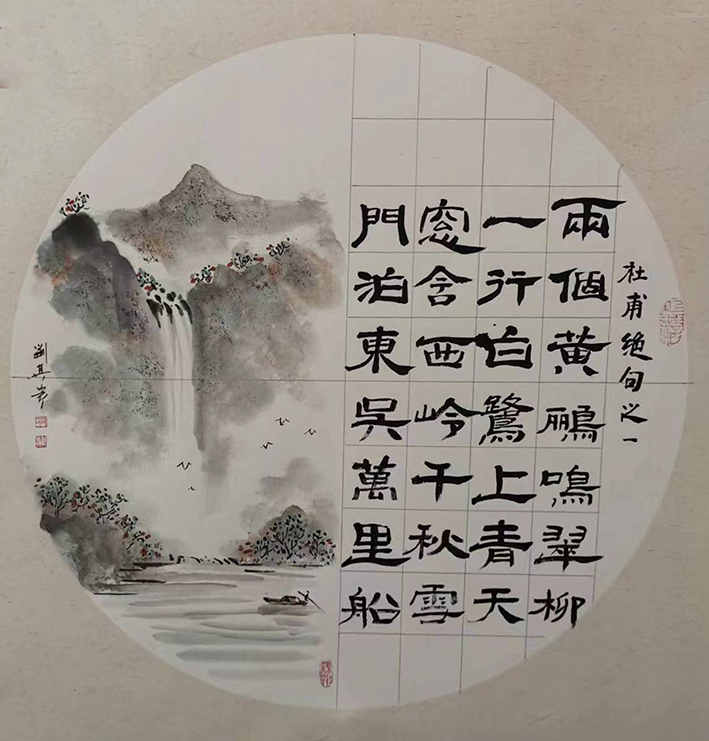 杜甫绝句之一
兩個黄鸝鳴翠柳
一行白鷺上青天
窓含西岭千秋雪
門泊東吳萬里船